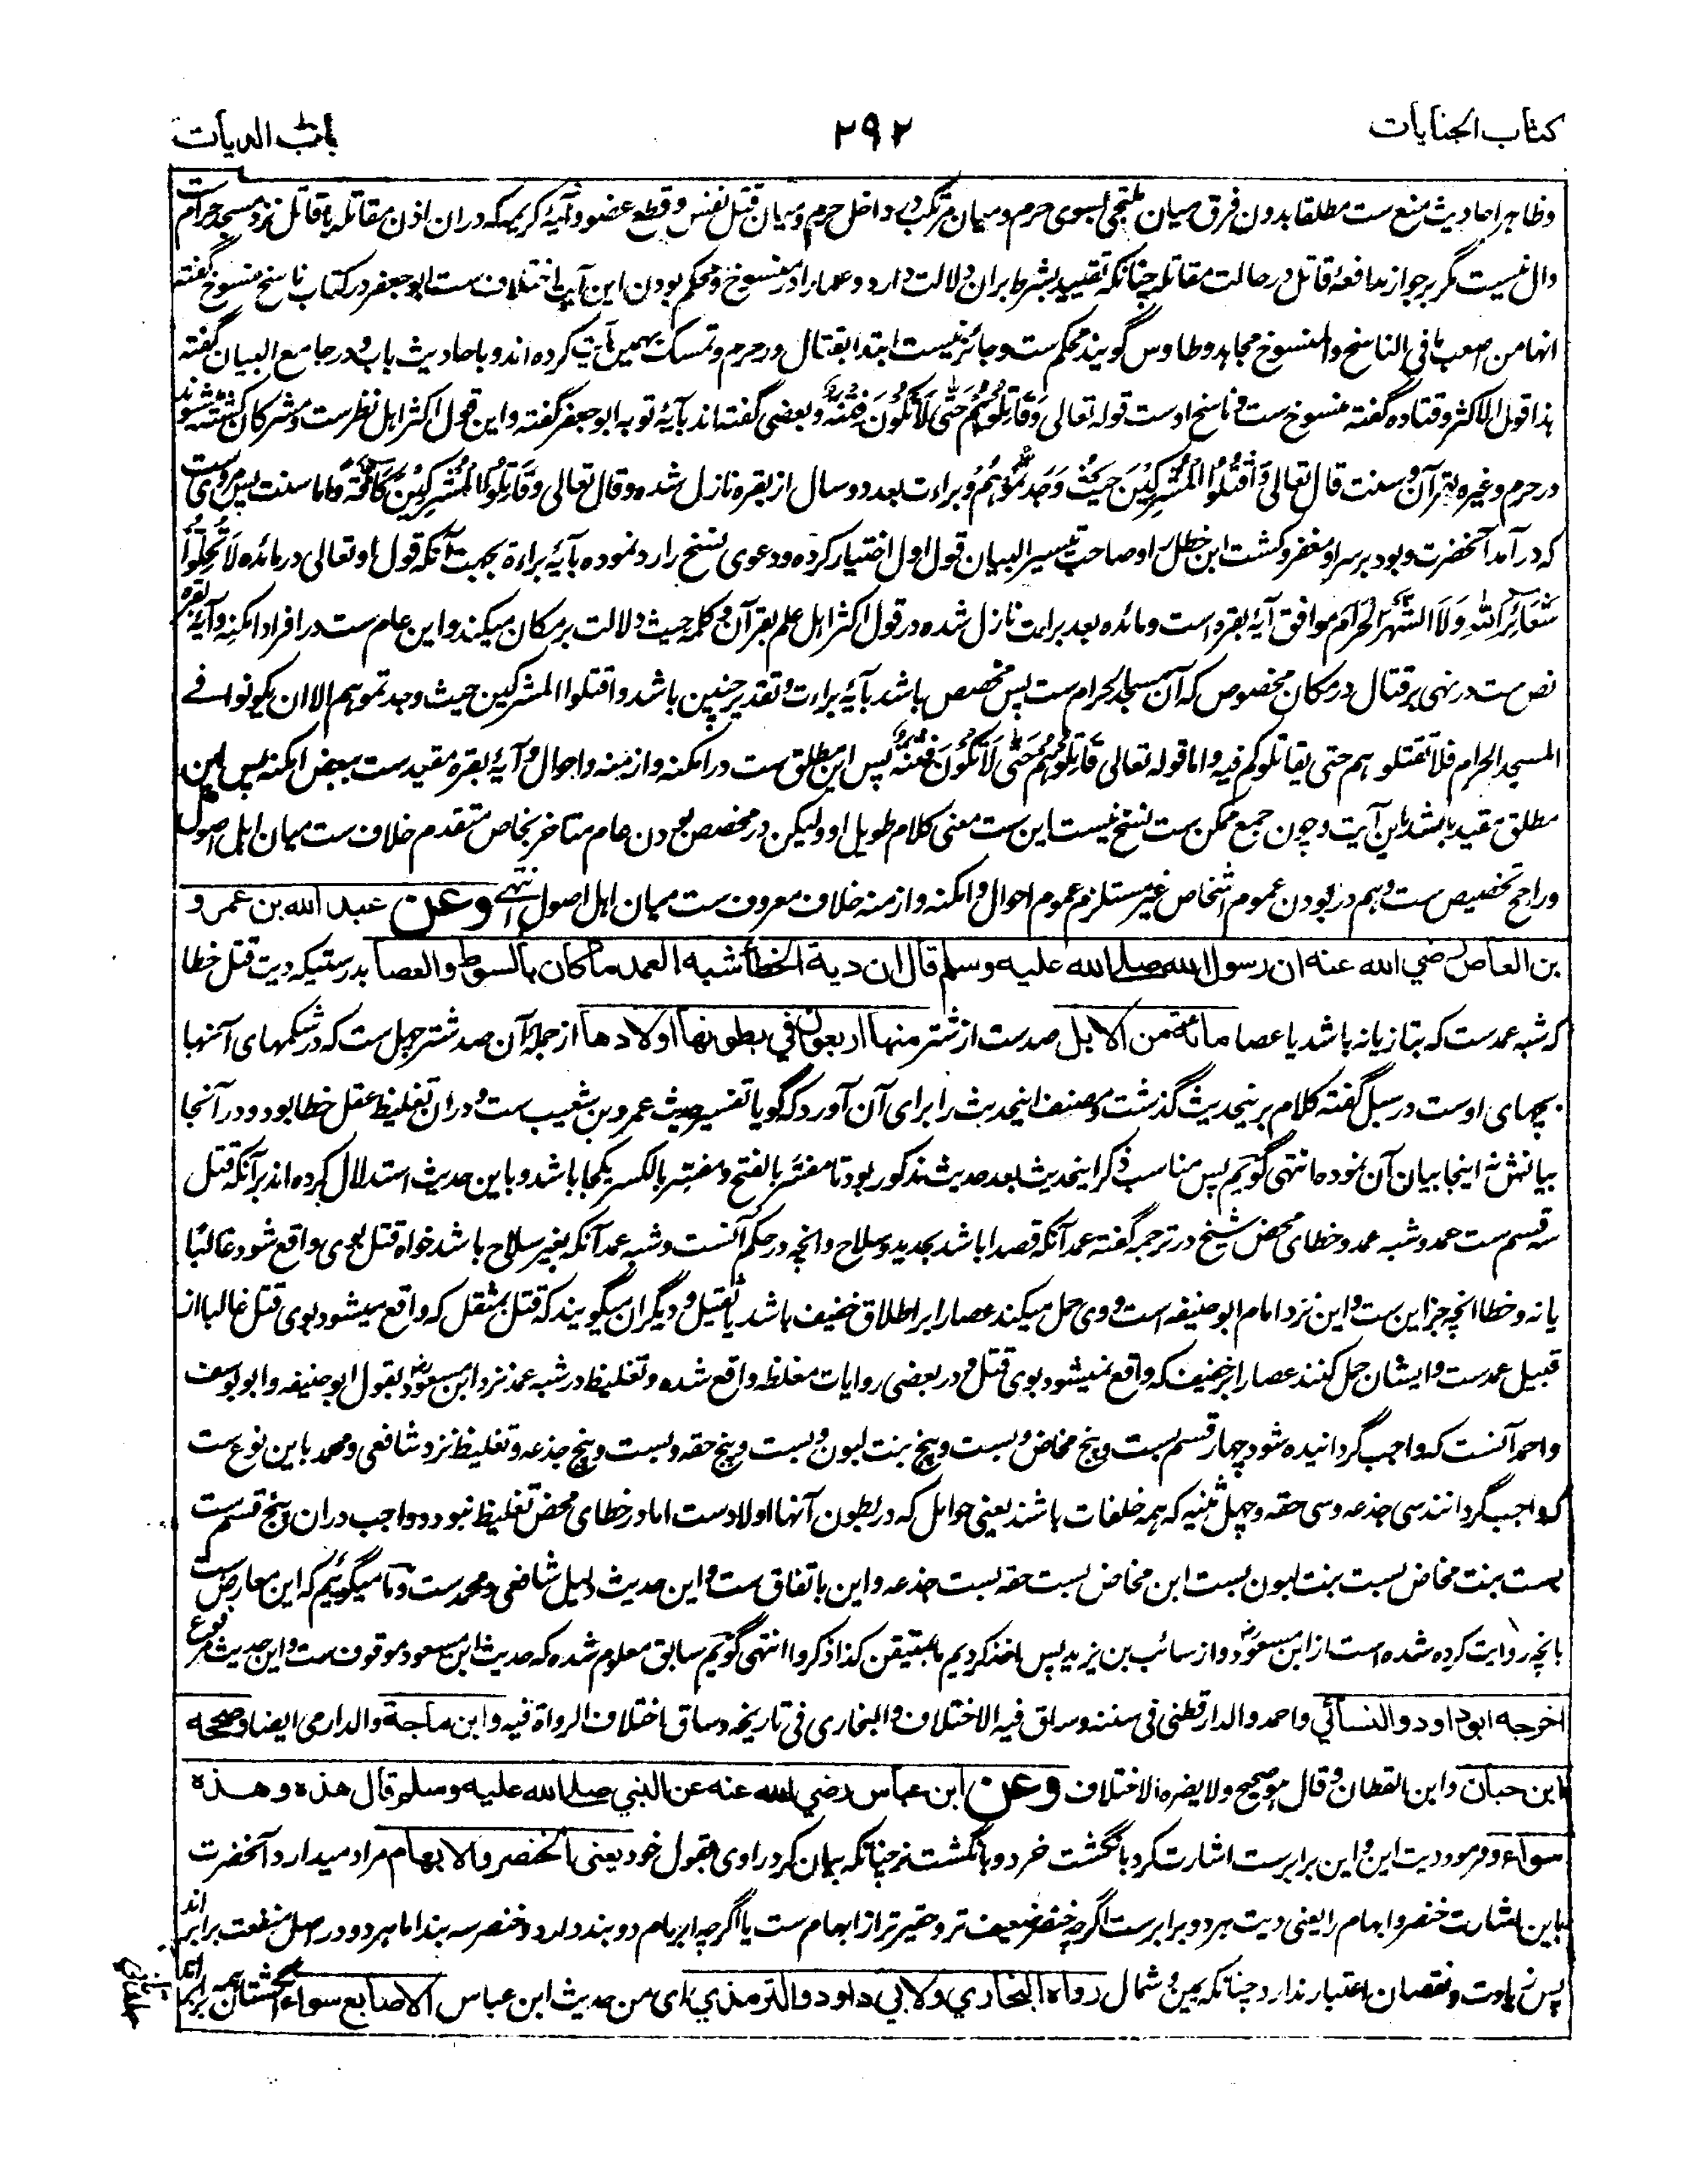 کتاب الجنایات ۲۹۲ باب الدیات
وظاهر احادیث منع ست مطلقا بدون فرق میان ملتجی بسوی حرم و میان مرتکب در داخل حرم و میان قتل نفس و قطع عضو و آیهٔ کریمه که دران اذن مقاتله با قاتل نزد مسجد حرام ست
دال نیست مگر بر جواز مدافعهٔ قاتل در حالت مقاتله چنانکه تقیید بشرط بران دلالت دارد و علما را در منسوخ و محکم بودن این آیت اختلاف ست ابو جعفر در کتاب ناسخ منسوخ گفته
انها من اصعب ما فی الناسخ والمنسوخ مجاهد و طاوس گویند محکم ست و جائز نیست ابتدا بقتال در حرم و تمسک بهمین آیت کرده اند و باحادیث باب و در جامع البیان گفته
هذا قول الاکثر و قتاده گفته منسوخ ست و ناسخ اوست قوله تعالی وَقَاتِلُوهُمْ حَتَّى لَا تَكُونَ فِتْنَةٌ و بعضی گفته اند بآیهٔ توبه ابو جعفر گفته و این قول اکثر اهل نظر ست و مشرکان کشته شوند
در حرم و غیره بقرآن و سنت قال تعالی وَاقْتُلُوا الْمُشْرِكِينَ حَيْثُ وَجَدْتُمُوهُمْ و براءت بعد دو سال از بقره نازل شده و قال تعالی وَقَاتِلُوا الْمُشْرِكِينَ كَافَّةً و اما سنت پس مروی ست
که در آمد آنحضرت و بود بر سر او مغفر و کشت ابن خطل را و صاحب تیسیر البیان قول اول اختیار کرده و دعوی نسخ را رد نموده بآیهٔ براءة بجهت آنکه قول او تعالی در مائده لَا تُحِلُّوا
شَعَائِرَ اللَّهِ وَلَا الشَّهْرَ الْحَرَامَ موافق آیهٔ بقره است و مائده بعد براءت نازل شده در قول اکثر اهل علم بقرآن و کلمه حیث دلالت بر مکان میکند و این عام ست در افراد امکنه و آیهٔ بقره
نص ست در نهی بر قتال در مکان مخصوص که آن مسجد الحرام ست پس مخصص باشد بآیهٔ براءت و تقدیر چنین باشد واقتلوا المشرکین حیث وجدتموهم الا ان یکونوا فی
المسجد الحرام فلا تقتلوهم حتی یقاتلوکم فیه و اما قوله تعالی قَاتِلُوهُمْ حَتَّى لَا تَكُونَ فِتْنَةٌ پس این مطلق ست در امکنه و ازمنه و احوال و آیهٔ بقره مقید ست ببعض امکنه پس این
مطلق مقید باشد باین آیت و چون جمع ممکن ست نسخ نیست این ست معنی کلام طویل او ولیکن در مخصص بودن عام متاخر بخاص متقدم خلاف ست میان اهل اصول
وراجح تخصیص ست و هم در بودن عموم اشخاص غیر مستلزم عموم احوال و امکنه و ازمنه خلاف معروف ست میان اهل اصول انتهی وعن عبد الله بن عمرو
بن العاص رضي الله عنه ان رسول الله صلى الله عليه وسلم قال ان دية الخطأ شبه العمد ما كان بالسوط والعصا بدرستیکه دیت قتل خطا
که شبه عمد ست که بتازیانه باشد یا عصا مائة من الابل صد ست از شتر منها اربعون في بطونها اولادها از جملهٔ آن صد شتر چهل ست که در شکمهای آنها
بچهای اوست در سبل گفته کلام برین حدیث گذشت و مصنف اینحدیث را برای آن آورد که گویا تفسیر حدیث عمرو بن شعیب ست و دران تغلیظ عقل خطا بود و در آنجا
بیانش نه اینجا بیان آن نموده انتهی گویم پس مناسب ذکر اینحدیث بعد حدیث مذکور بود تا مفسَّر بالفتح و مفسِّر بالکسر یکجا باشد و باین حدیث استدلال کرده اند برآنکه قتل
سه قسم ست عمد و شبه عمد و خطای محض شیخ در ترجمه گفته عمد آنکه قصدا باشد بحدید و سلاح و انچه در حکم آنست و شبه عمد آنکه بغیر سلاح باشد خواه قتل بوی واقع شود غالبًا
یا نه و خطا انچه جز این ست و این نزد امام ابو حنیفه است و وی حمل میکند عصا را بر اطلاق خفیف باشد یا ثقیل و دیگران میگویند که قتل بمثقل که واقع میشود بوی قتل غالبا از
قبیل عمد ست و ایشان حمل کنند عصا را بر خفیف که واقع نمیشود بوی قتل و در بعضی روایات مغلظه واقع شده و تغلیظ در شبه عمد نزد ابن مسعود و بقول ابو حنیفه و ابو یوسف
و احمد آنست که واجب گردانیده شود چهار قسم بست و پنج مخاض و بست و پنج بنت لبون و بست و پنج حقه و بست و پنج جذعه و تغلیظ نزد شافعی و محمد باین نوع ست
که واجب گردانند سی جذعه و سی حقه و چهل ثنیه که همه خلفات باشند یعنی حوامل که در بطون آنها اولاد ست اما در خطای محض تغلیظ نبود و واجب دران پنج قسم ست
بست بنت مخاض بست بنت لبون بست ابن مخاض بست حقه بست جذعه و این باتفاق ست و این حدیث دلیل شافعی و محمد ست و ما میگوئیم که این معارض ست
بانچه روایت کرده شده است از ابن مسعود و از سائب بن یزید پس اخذ کردیم بمتیقن کذا ذکروا انتهی گویم سابق معلوم شده که حدیث ابن مسعود موقوف ست و این حدیث مرفوع
اخرجه ابو داود والنسائي واحمد والدارقطنی فی سننه وساق فیه الاختلاف والبخاری فی تاریخه وساق اختلاف الرواة فیه وابن ماجة والدارمی ایضا وصححه
ابن حبان وابن القطان وقال هو صحیح ولا یضره الاختلاف وعن ابن عباس رضي الله عنه عن النبي صلى الله عليه وسلم قال هذه وهذه
سواء و فرمود دیت این و این برابر ست اشارت کرد بانگشت خرد و بانگشت نر چنانکه بیان کرد راوی بقول خود یعنی الخنصر والابهام مراد میدارد آنحضرت
باین اشارت خنصر و ابهام را یعنی دیت هر دو برابر ست اگرچه خنصر ضعیف تر و حقیر تر از ابهام ست یا اگرچه ابهام دو بند دارد و خنصر سه بند اما هر دو در اصل منفعت برابر اند
پس زیادت و نقصان اعتبار ندارد چنانکه یمین و شمال رواه البخاري ولابي داود والترمذي ای من حدیث ابن عباس الاصابع سواء انگشتان همه برابر اند